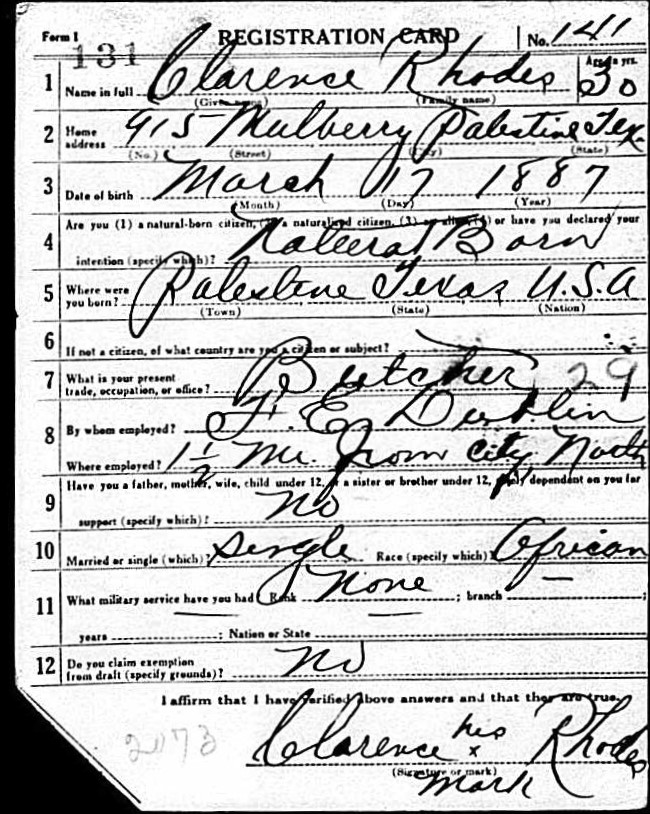 Form 1 131 REGISTRATION CARD No. 1411
Clarence Rhodes Age in yrs. 30
1 Name in full
(Given name) (Family name)
2 Home address 915 Mulberry Palestine Tex.
(No.) (Street) (City) (State)
3 Date of birth March 17 1887
(Month) (Day) (Year)
4 Are you (1) a natural-born citizen, (2) a naturalized citizen, (3) an alien, (4) or have you declared your
intention (specify which)? Natural Born
5 Where were you born? Palestine Texas U.S.A
(Town) (State) (Nation)
6 If not a citizen, of what country are you a citizen or subject?
7 What is your present trade, occupation, or office? Butcher 29
8 By whom employed? F. E. Dublin
Where employed? 1 1/2 Mi. from City North
9 Have you a father, mother, wife, child under 12, or a sister or brother under 12, solely dependent on you for
support (specify which)? No
10 Married or single (which)? Single Race (specify which)? African
11 What military service have you had? Rank None ; branch ;
years ; Nation or State
12 Do you claim exemption from draft (specify grounds)? No
I affirm that I have verified above answers and that they are true.
2073 Clarence his x Rhodes
(Signature or mark)
mark